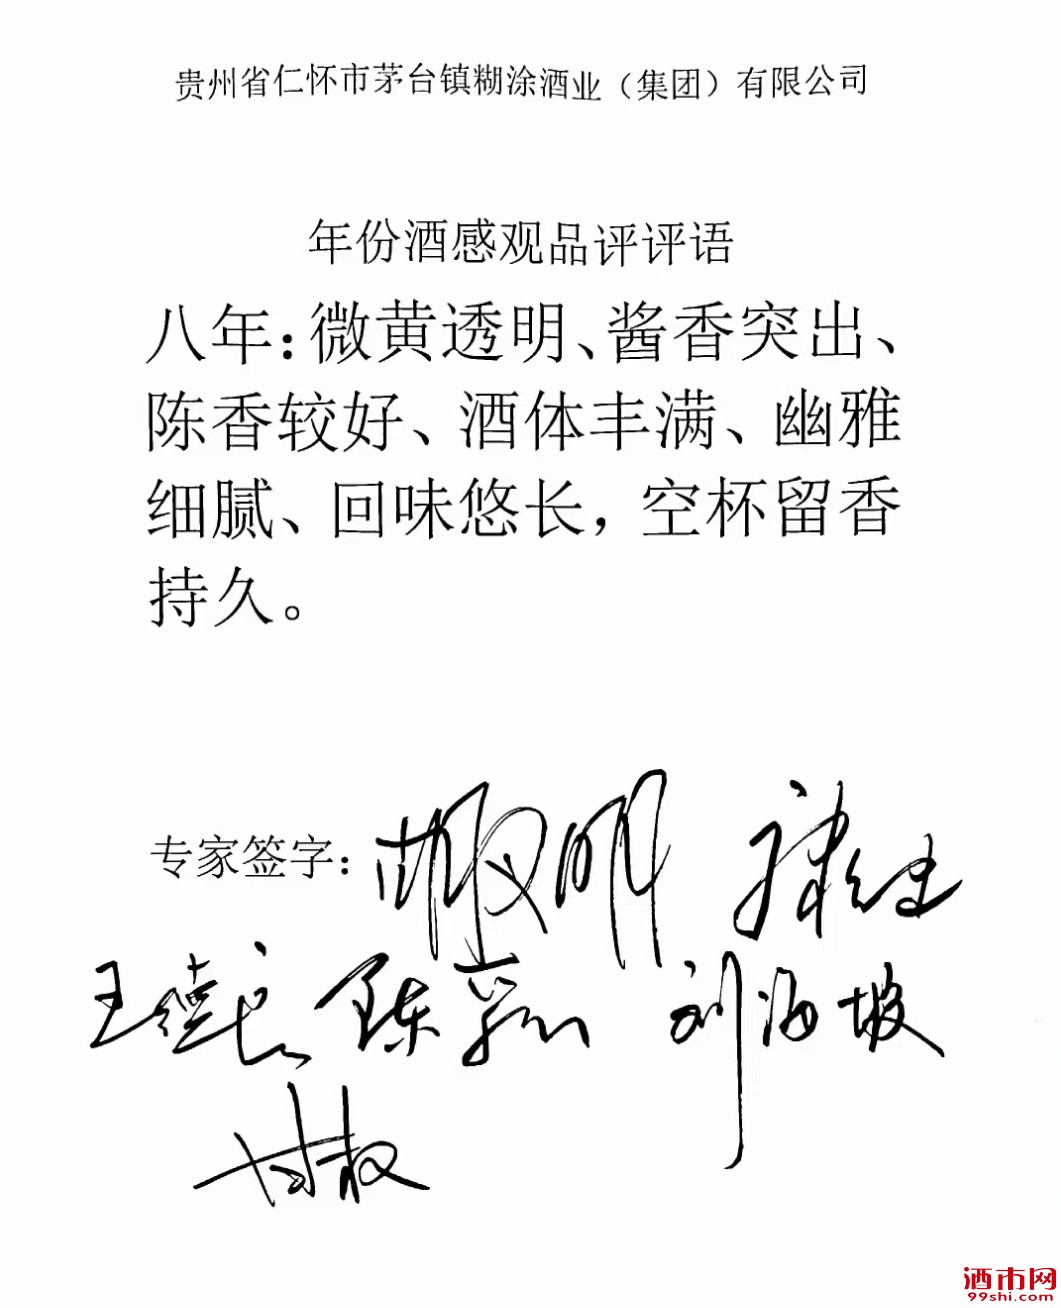 贵州省仁怀市茅台镇糊涂酒业（集团）有限公司
年份酒感观品评评语
八年：微黄透明、酱香突出、
陈香较好、酒体丰满、幽雅
细腻、回味悠长，空杯留香
持久。
专家签字：
刘海坡
酒市网
99shi.com